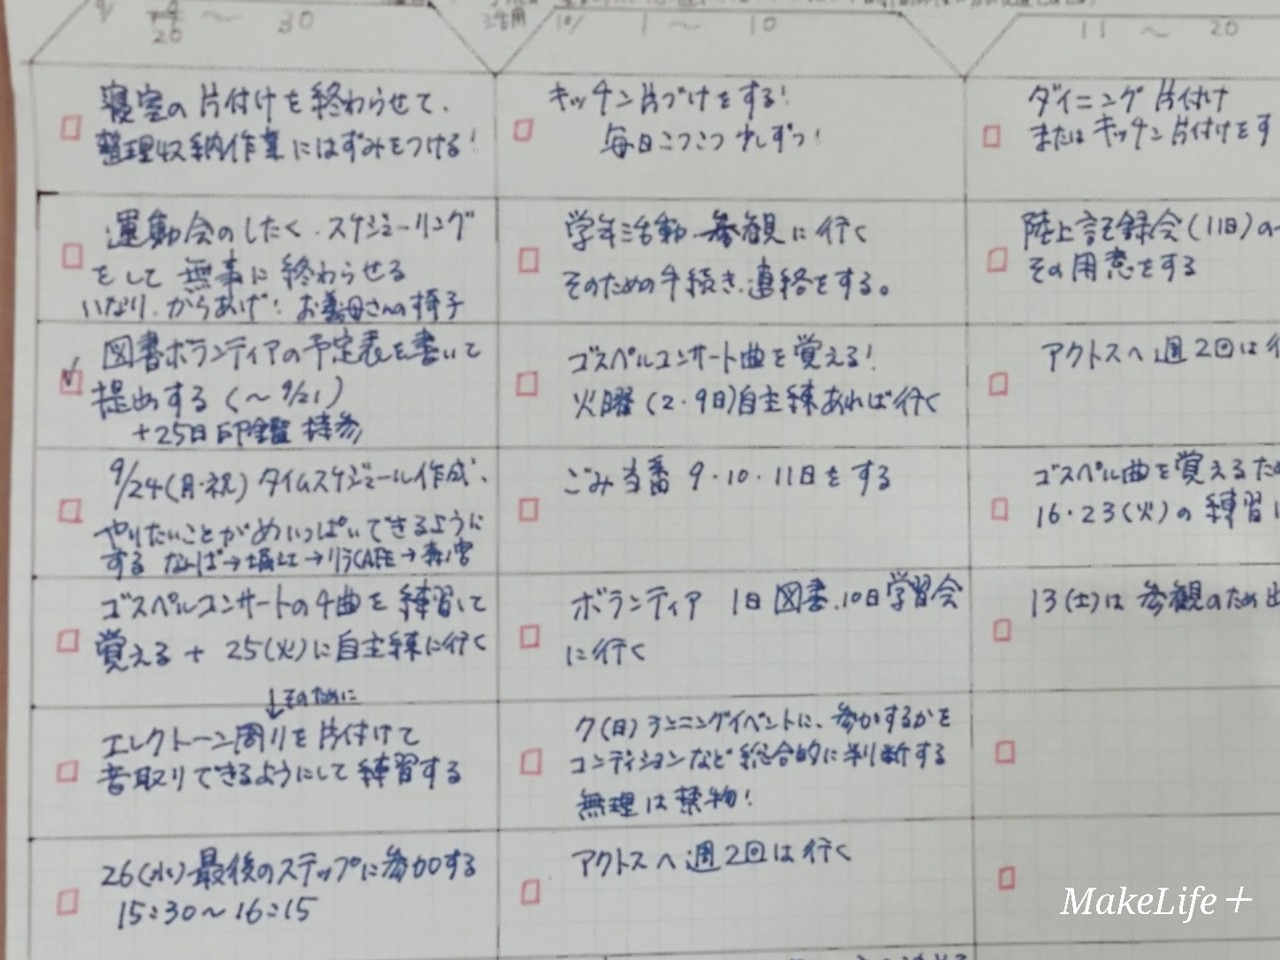 9/
20 ～ 30
寝室の片付けを終わらせて、
整理収納作業にはずみをつける!
運動会のしたく、スケジューリング
をして無事に終わらせる
いなり、からあげ! お義母さんの様子
図書ボランティアの予定表を書いて
提出する (～9/21)
+25日 印鑑 持参
9/24(月・祝) タイムスケジュール作成、
やりたいことがめいっぱいできるように
する なんば→堀江→リラCAFE→森ノ宮
ゴスペルコンサートの4曲を練習して
覚える + 25(火)に自主練に行く
↓そのために
エレクトーン周りを片付けて
音取りできるようにして練習する
26(水)最後のステップに参加する
15:30～16:15
10/
1 ～ 10
キッチン片づけをする!
毎日こつこつ少しずつ!
学年活動 参観に行く
そのための手続き、連絡をする。
ゴスペルコンサート曲を覚える!
火曜 (2・9日)自主練あれば行く
ごみ当番 9・10・11日をする
ボランティア 1日図書、10日学習会
に行く
7(日)ランニングイベントに、参加するかを
コンディションなど総合的に判断する
無理は禁物!
アクトスへ週2回は行く
11 ～ 20
ダイニング片付け
またはキッチン片付けをす
陸上記録会(11日)の
その用意をする
アクトスへ週2回は行
ゴスペル曲を覚えるため
16・23(火)の練習に
13(土)は参観のため出
MakeLife+